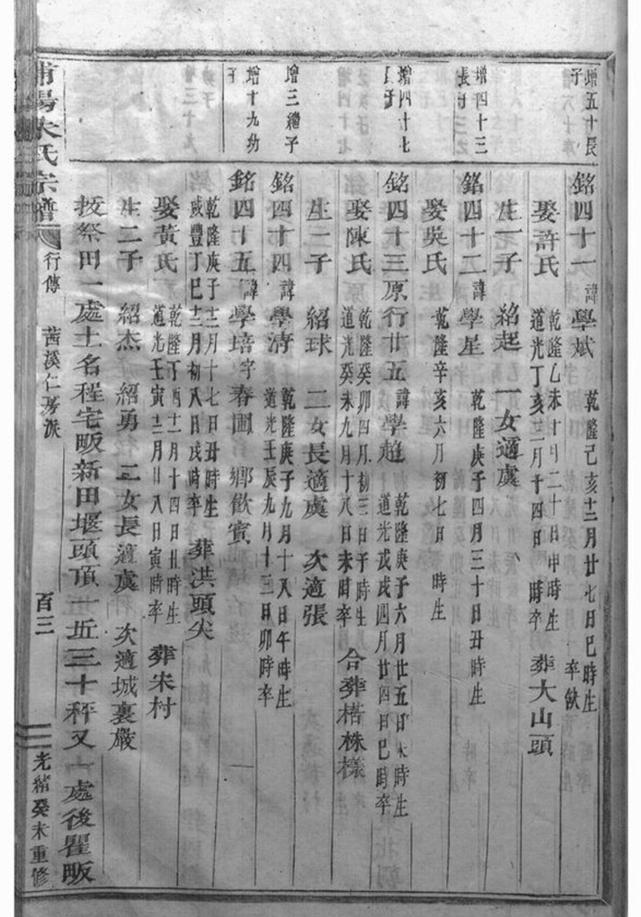 增五十長子
銘四十一諱學斌 乾隆己亥十二月廿七日巳時生 卒缺
娶許氏 乾隆乙未十月二十日申時生 道光丁亥三月十四日 時卒 葬大山頭
生一子 紹起 一女適虞
增四十三長子
銘四十二諱學星 乾隆庚子四月三十日丑時生
娶吳氏 乾隆辛亥六月初七日 時生
增四十七長子
銘四十三原行廿五諱學趙 乾隆庚子六月廿五日未時生 道光戊戌四月廿四日巳時卒
娶陳氏 乾隆癸卯四月初三日子時生 道光癸未九月十八日未時卒 合葬楮株樣
生一子 紹球 二女長適虞 次適張
增三繼子
銘四十四諱學清 乾隆庚子九月十八日午時生 道光壬辰九月十三日卯時卒
增十九幼子
銘四十五諱學培字春圃 鄉飲賓
乾隆庚子十二月十七日丑時生 咸豐丁巳十二月初八日戌時卒 葬洪頭尖
娶黃氏 乾隆丁酉十二月十四日丑時生 道光壬寅十二月廿八日寅時卒 葬朱村
生二子 紹杰 紹勇 二女長適虞 次適城裏嚴
撥祭田一處土名程宅畈新田堰頭頂 近三十秤又一處後瞿畈
浦陽朱氏宗譜 行傳 茜溪仁房派 百三 光緒癸未重修